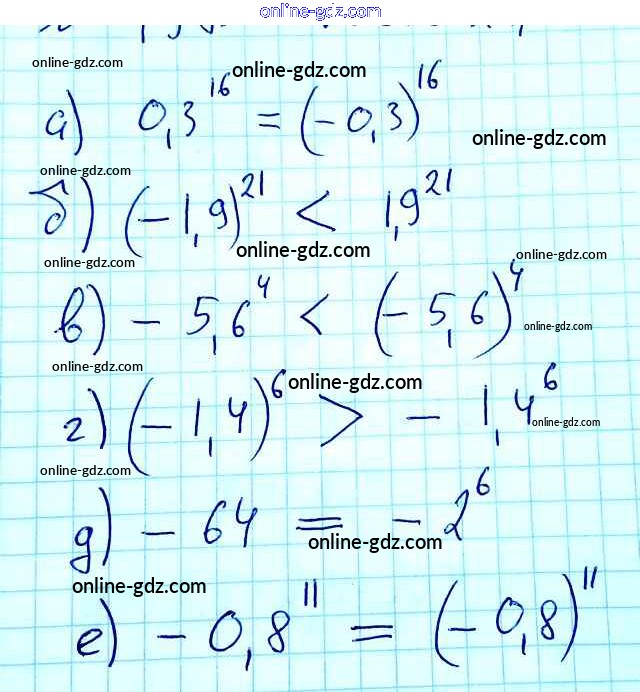 online-gdz.com
online-gdz.com
online-gdz.com
а) 0,3^16 = (-0,3)^16
online-gdz.com
online-gdz.com
б) (-1,9)^21 < 1,9^21
online-gdz.com
online-gdz.com
online-gdz.com
в) - 5,6^4 < (-5,6)^4
online-gdz.com
online-gdz.com
online-gdz.com
г) (-1,4)^6 > - 1,4^6
online-gdz.com
online-gdz.com
д) - 64 = - 2^6
online-gdz.com
online-gdz.com
е) - 0,8^11 = (-0,8)^11